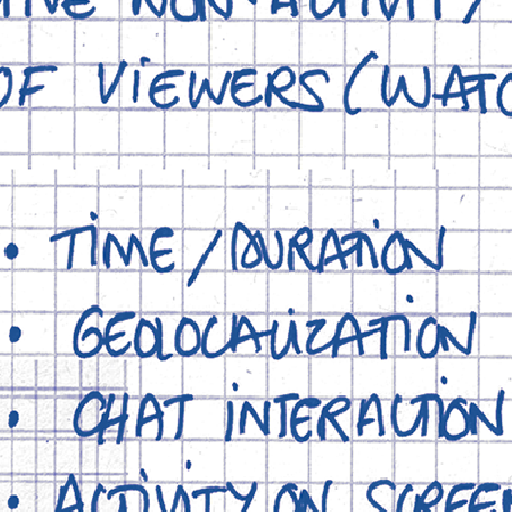 NON-ACTIVITY/
OF VIEWERS (WATC
• TIME / DURATION
• GEOLOCALIZATION
• CHAT INTERACTION
• ACTIVITY ON SCREEN